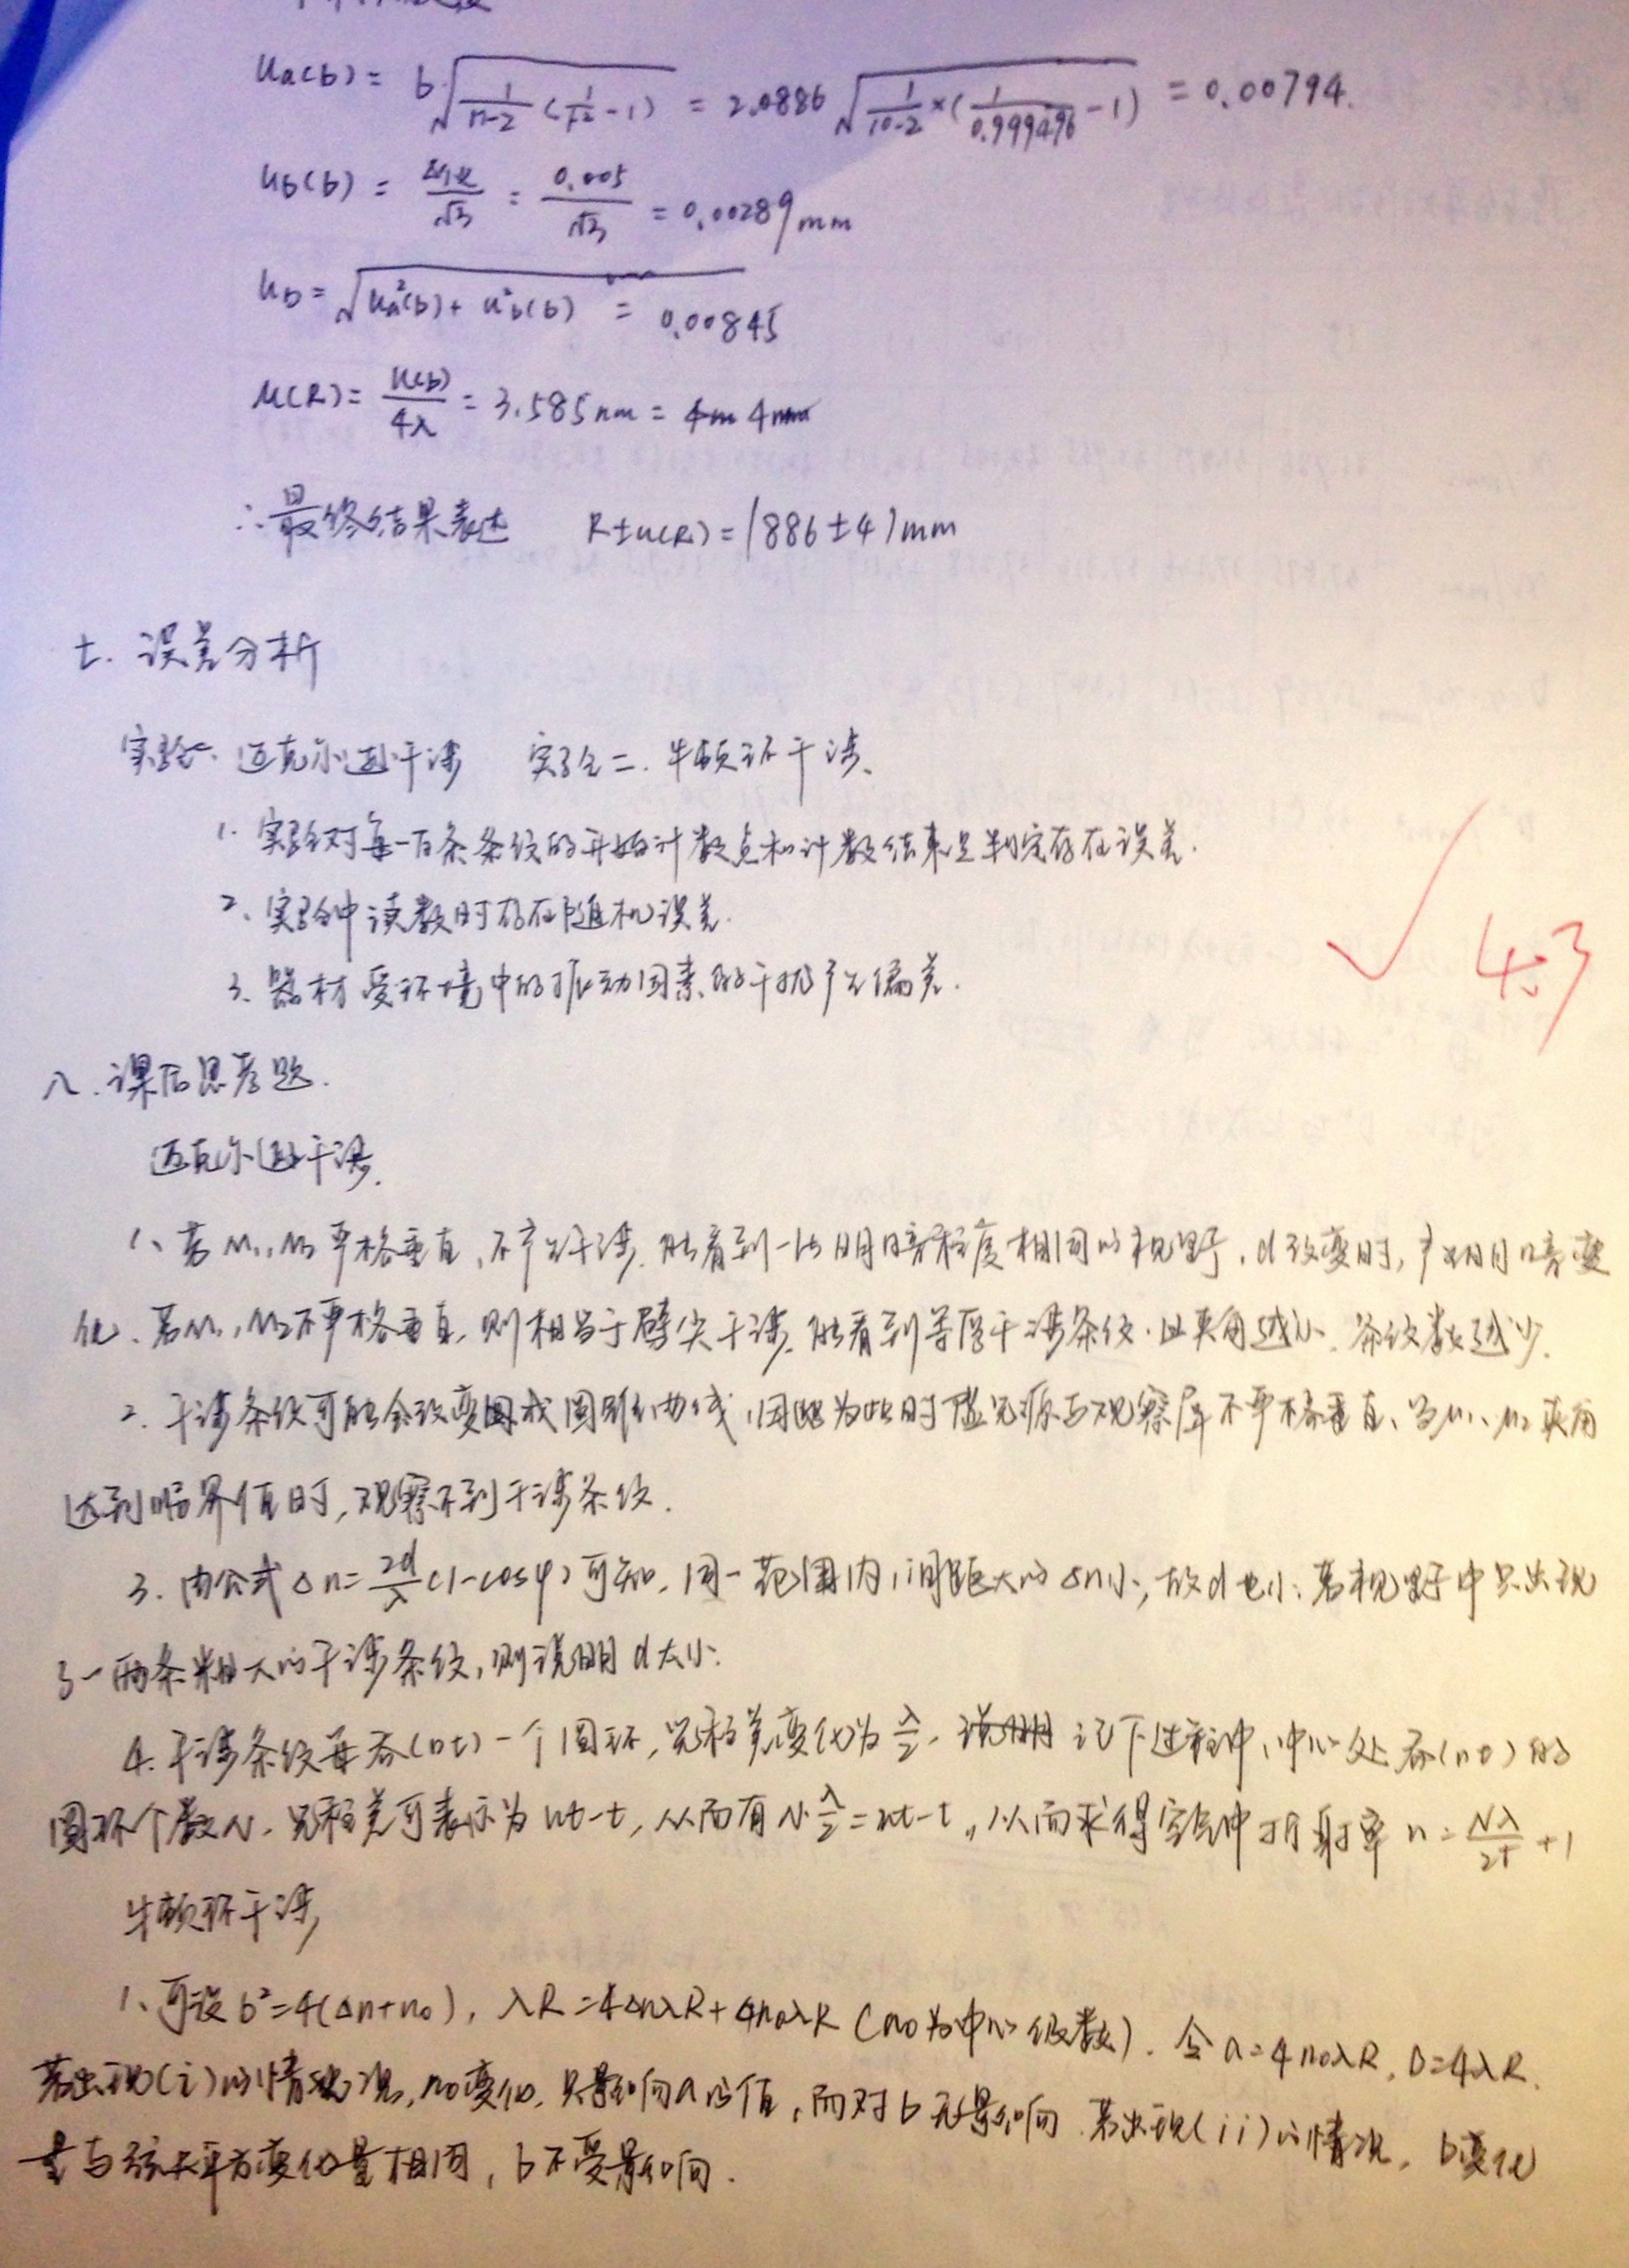 Ua(b) = b√(1/(n-2) (1/r²-1)) = 2.0886 √(1/(10-2)×(1/0.999496-1)) = 0.00794.
Ub(b) = /√3 = 0.005/√3 = 0.00289mm
Ub = √(Ua²(b)+u²b(b)) = 0.00845
u(R) = u(b)/4λ = 3.585mm = 4mm
∴最终结果表达 R±u(R) = (886±4)mm
七. 误差分析
实验一. 迈克尔逊干涉 实验二. 牛顿环干涉、
1. 实验对每一百条条纹的开始计数点和计数结束点判定存在误差.
2、实验中读数时存在随机误差.
3、器材受环境中的振动因素的干扰产生偏差.
八.课后思考题.
迈克尔逊干涉.
1、若M₁,M₂严格垂直,不产生干涉.能看到一片明暗程度相同的视野.d改变时,产生明暗变
化、若M₁,M₂不严格垂直,则相当于劈尖干涉.能看到等厚干涉条纹.且夹角越小.条纹数越少.
2. 干涉条纹可能会改变成圆锥曲线,因为此时虚光源与观察屏不严格垂直、当M₁、M₂夹角
达到临界值时,观察不到干涉条纹.
3. 由公式Δn=2d/λ(1-cosφ)可知,同一范围内,间距大的Δn小,故d也小;若视野中只出现
了一两条粗大的干涉条纹,则说明d太小.
4.干涉条纹每吞(吐)一个圆环,光程差变化为λ/2. 记下过程中,中心处吞(吐)的
圆环个数N.光程差可表示为nt-t,从而有N·λ/2=nt-t,从而求得实验中折射率 n=Nλ/2t+1
牛顿环干涉
1、可设b²=4(Δn+n₀),λR=4ΔnλR+4n₀λR(n₀为中心级数).令a=4n₀λR,b=4λR.
若出现(i)的情况,n₀变化,只影响a的值,而对b无影响.若出现(ii)的情况,b变化
量与弦长平方变化量相同,b不受影响.
√ 4.3